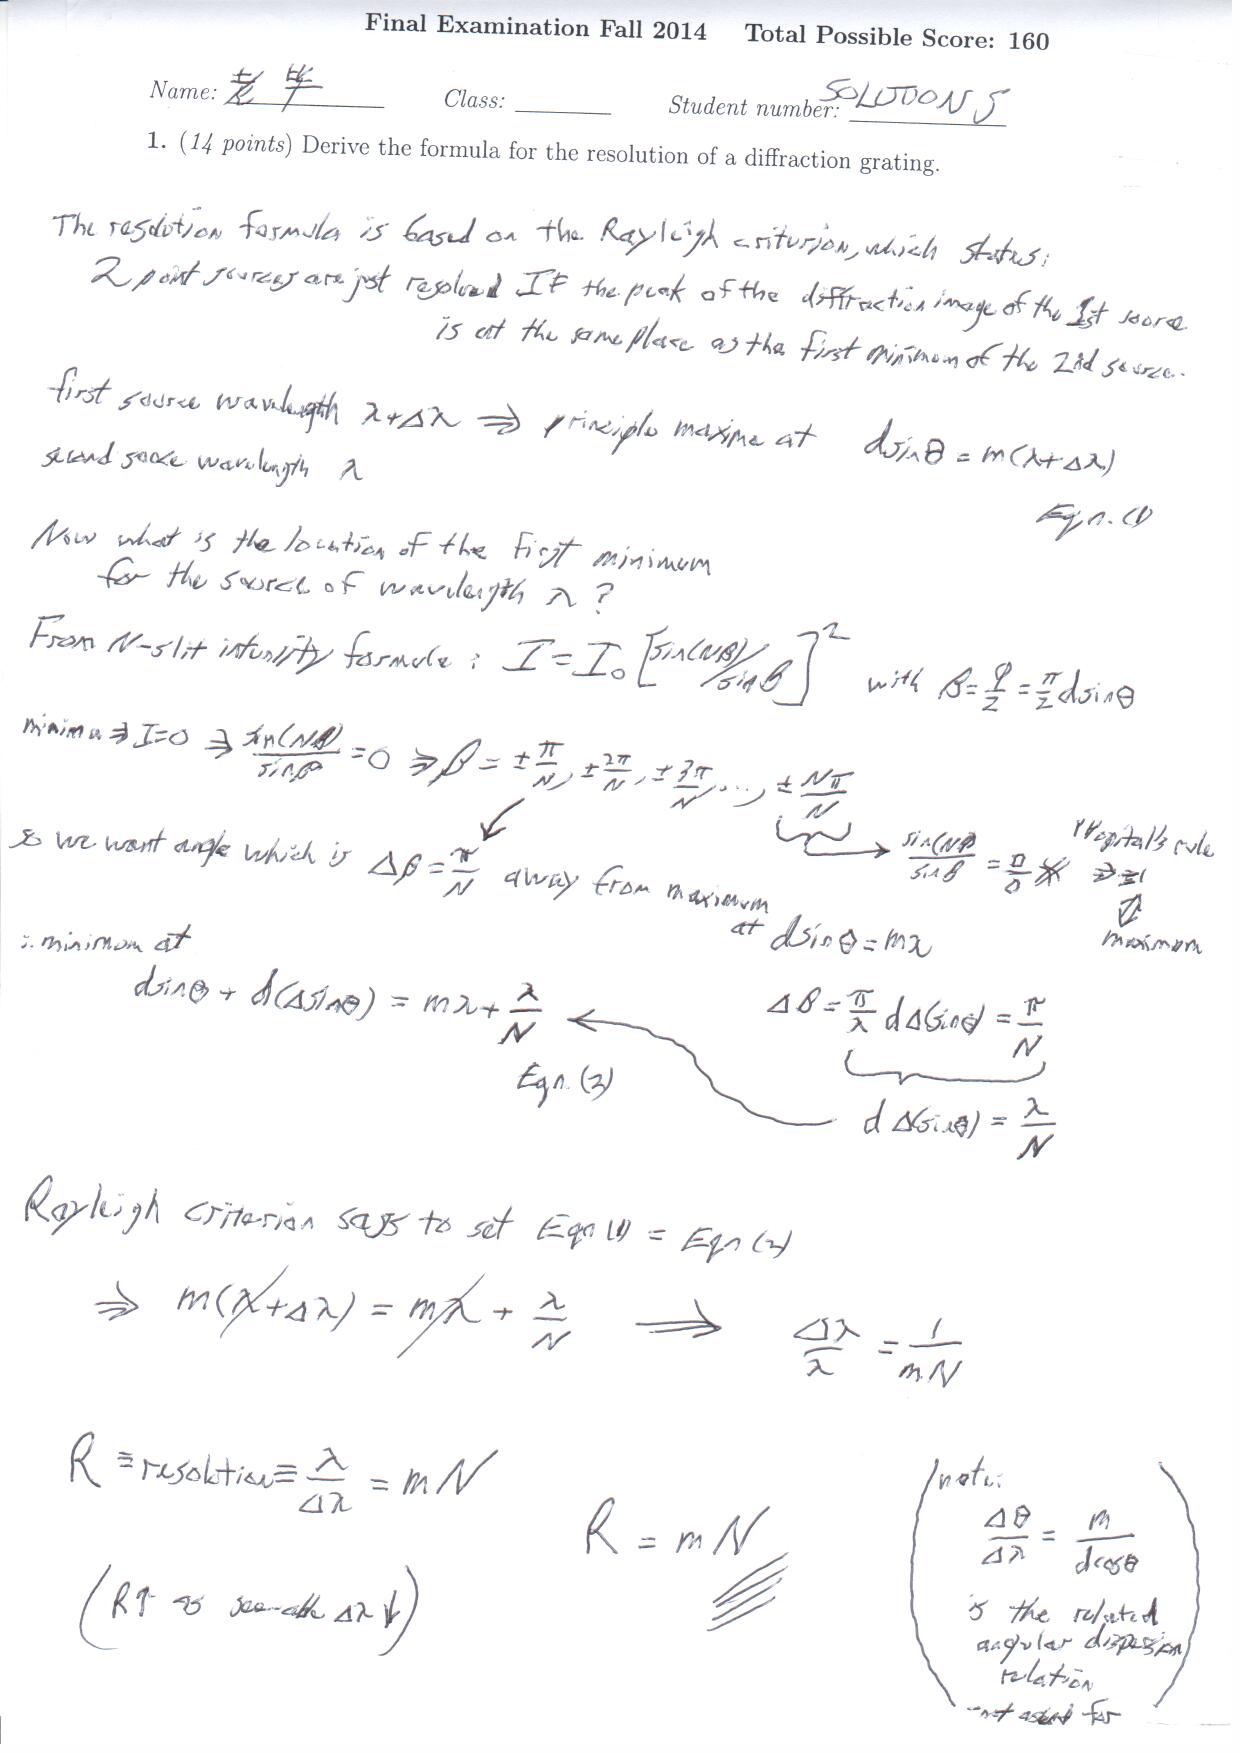 Final Examination Fall 2014 Total Possible Score: 160
Name: 老毕 Class: ______ Student number: SOLUTIONS
1. (14 points) Derive the formula for the resolution of a diffraction grating.
The resolution formula is based on the Rayleigh criturion, which states:
2 point sources are just resolved IF the peak of the diffraction image of the 1st source
is at the same place as the first minimum of the 2nd source.
first source wavelength λ+Δλ ⇒ principle maxima at dsinθ = m(λ+Δλ)
second source wavelength λ
Eqn. (1)
Now what is the location of the first minimum
for the source of wavelength λ?
From N-slit intensity formula: I = I₀ [sin(Nβ)/sinβ]² with β = φ/2 = π/2 dsinθ
minima ⇒ I=0 ⇒ sin(Nβ)/sinβ = 0 ⇒ β = ±π/N, ±2π/N, ±3π/N, ..., ±Nπ/N
sin(Nβ)/sinβ = 0/0 l'Hopital's rule
⇒ ±1
⇕
maximum
so we want angle which is Δβ = π/N away from maximum
at dsinθ = mλ
∴ minimum at
dsinθ + d(Δsinθ) = mλ + λ/N
Δβ = π/λ dΔ(sinθ) = π/N
Eqn. (2)
d Δ(sinθ) = λ/N
Rayleigh criterion says to set Eqn (1) = Eqn (2)
⇒ m(λ+Δλ) = mλ + λ/N ⟹ Δλ/λ = 1/mN
R ≡ resolution ≡ λ/Δλ = mN
R = mN
(R↑ as Δλ↓)
(note:
Δθ/Δλ = m/dcosθ
is the related
angular dispersion
relation
-not asked for)